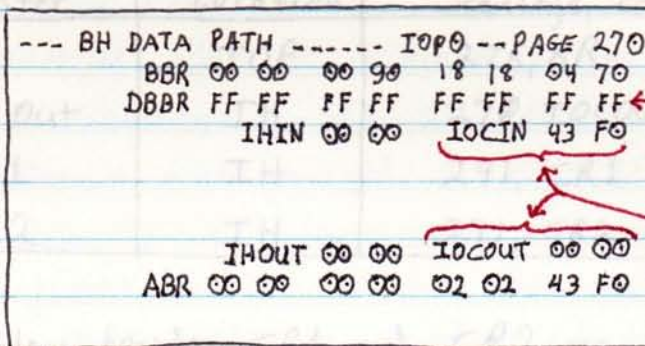 --- BH DATA PATH ------ IOP0 -- PAGE 270
BBR 00 00 00 90 18 18 04 70
DBBR FF FF FF FF FF FF FF FF
IHIN 00 00 IOCIN 43 F0
IHOUT 00 00 IOCOUT 00 00
ABR 00 00 00 00 02 02 43 F0